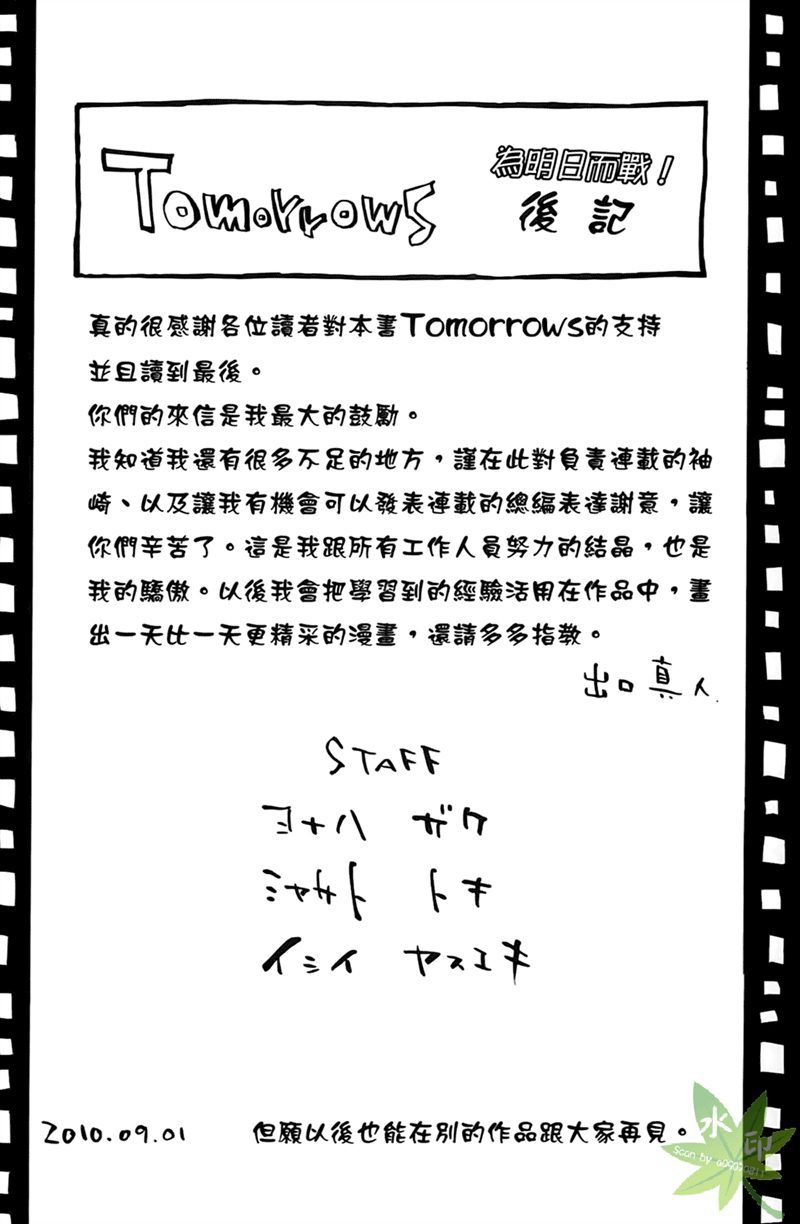 Tomorrows
為明日而戰！
後記
真的很感謝各位讀者對本書Tomorrows的支持
並且讀到最後。
你們的來信是我最大的鼓勵。
我知道我還有很多不足的地方，謹在此對負責連載的袖
崎、以及讓我有機會可以發表連載的總編表達謝意，讓
你們辛苦了。這是我跟所有工作人員努力的結晶，也是
我的驕傲。以後我會把學習到的經驗活用在作品中，畫
出一天比一天更精采的漫畫，還請多多指教。
出口真人
STAFF
ヨナハ ガク
ミヤサト トキ
イシイ ヤスユキ
2010.09.01 但願以後也能在別的作品跟大家再見。
水印